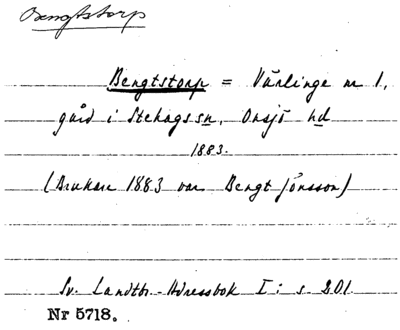 Bengtstorp
Bengtstorp = Värlinge nr 1,
gård i Stehags sn, Onsjö hd
1883.
(Brukare 1883 var Bengt Jönsson)
Sv. Landtbr.-Adressbok I: s 201
Nr 5718.